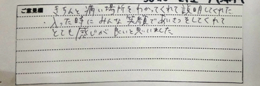 ご意見欄
きちんと痛い場所をわかってくれて説明してくれた
・入った時にみんな笑顔であいさつをしてくれて
とても感じが良いと思いました